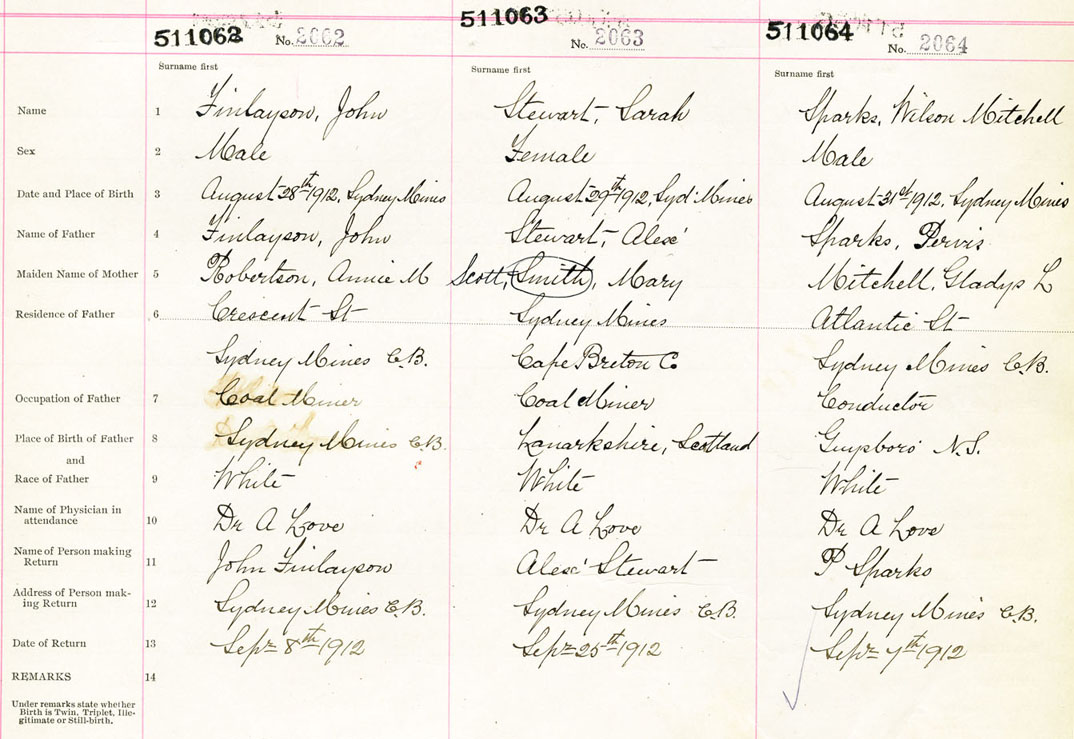 511062 No. 2062 511063 No. 2063 511064 No. 2064
Surname first Surname first Surname first
Name 1 Finlayson, John Stewart, Sarah Sparks, Wilson Mitchell
Sex 2 Male Female Male
Date and Place of Birth 3 August 28th 1912, Sydney Mines August 29th 1912, Syd' Mines August 31st 1912, Sydney Mines
Name of Father 4 Finlayson, John Stewart, Alexr Sparks, Pervis
Maiden Name of Mother 5 Robertson, Annie M Scott, Smith, Mary Mitchell, Gladys L
Residence of Father 6 Crescent St Sydney Mines Atlantic St
Sydney Mines C.B. Cape Breton Co Sydney Mines C.B.
Occupation of Father 7 Coal Miner Coal Miner Conductor
Place of Birth of Father 8 Sydney Mines C.B. Lanarkshire, Scotland Guysboro N.S.
and
Race of Father 9 White White White
Name of Physician in
attendance 10 Dr A Love Dr A Love Dr A Love
Name of Person making
Return 11 John Finlayson Alexr Stewart P Sparks
Address of Person mak-
ing Return 12 Sydney Mines C.B. Sydney Mines C.B. Sydney Mines C.B.
Date of Return 13 Sepr 8th 1912 Sepr 25th 1912 Sepr 7th 1912
REMARKS 14
Under remarks state whether
Birth is Twin, Triplet, Ille-
gitimate or Still-birth.